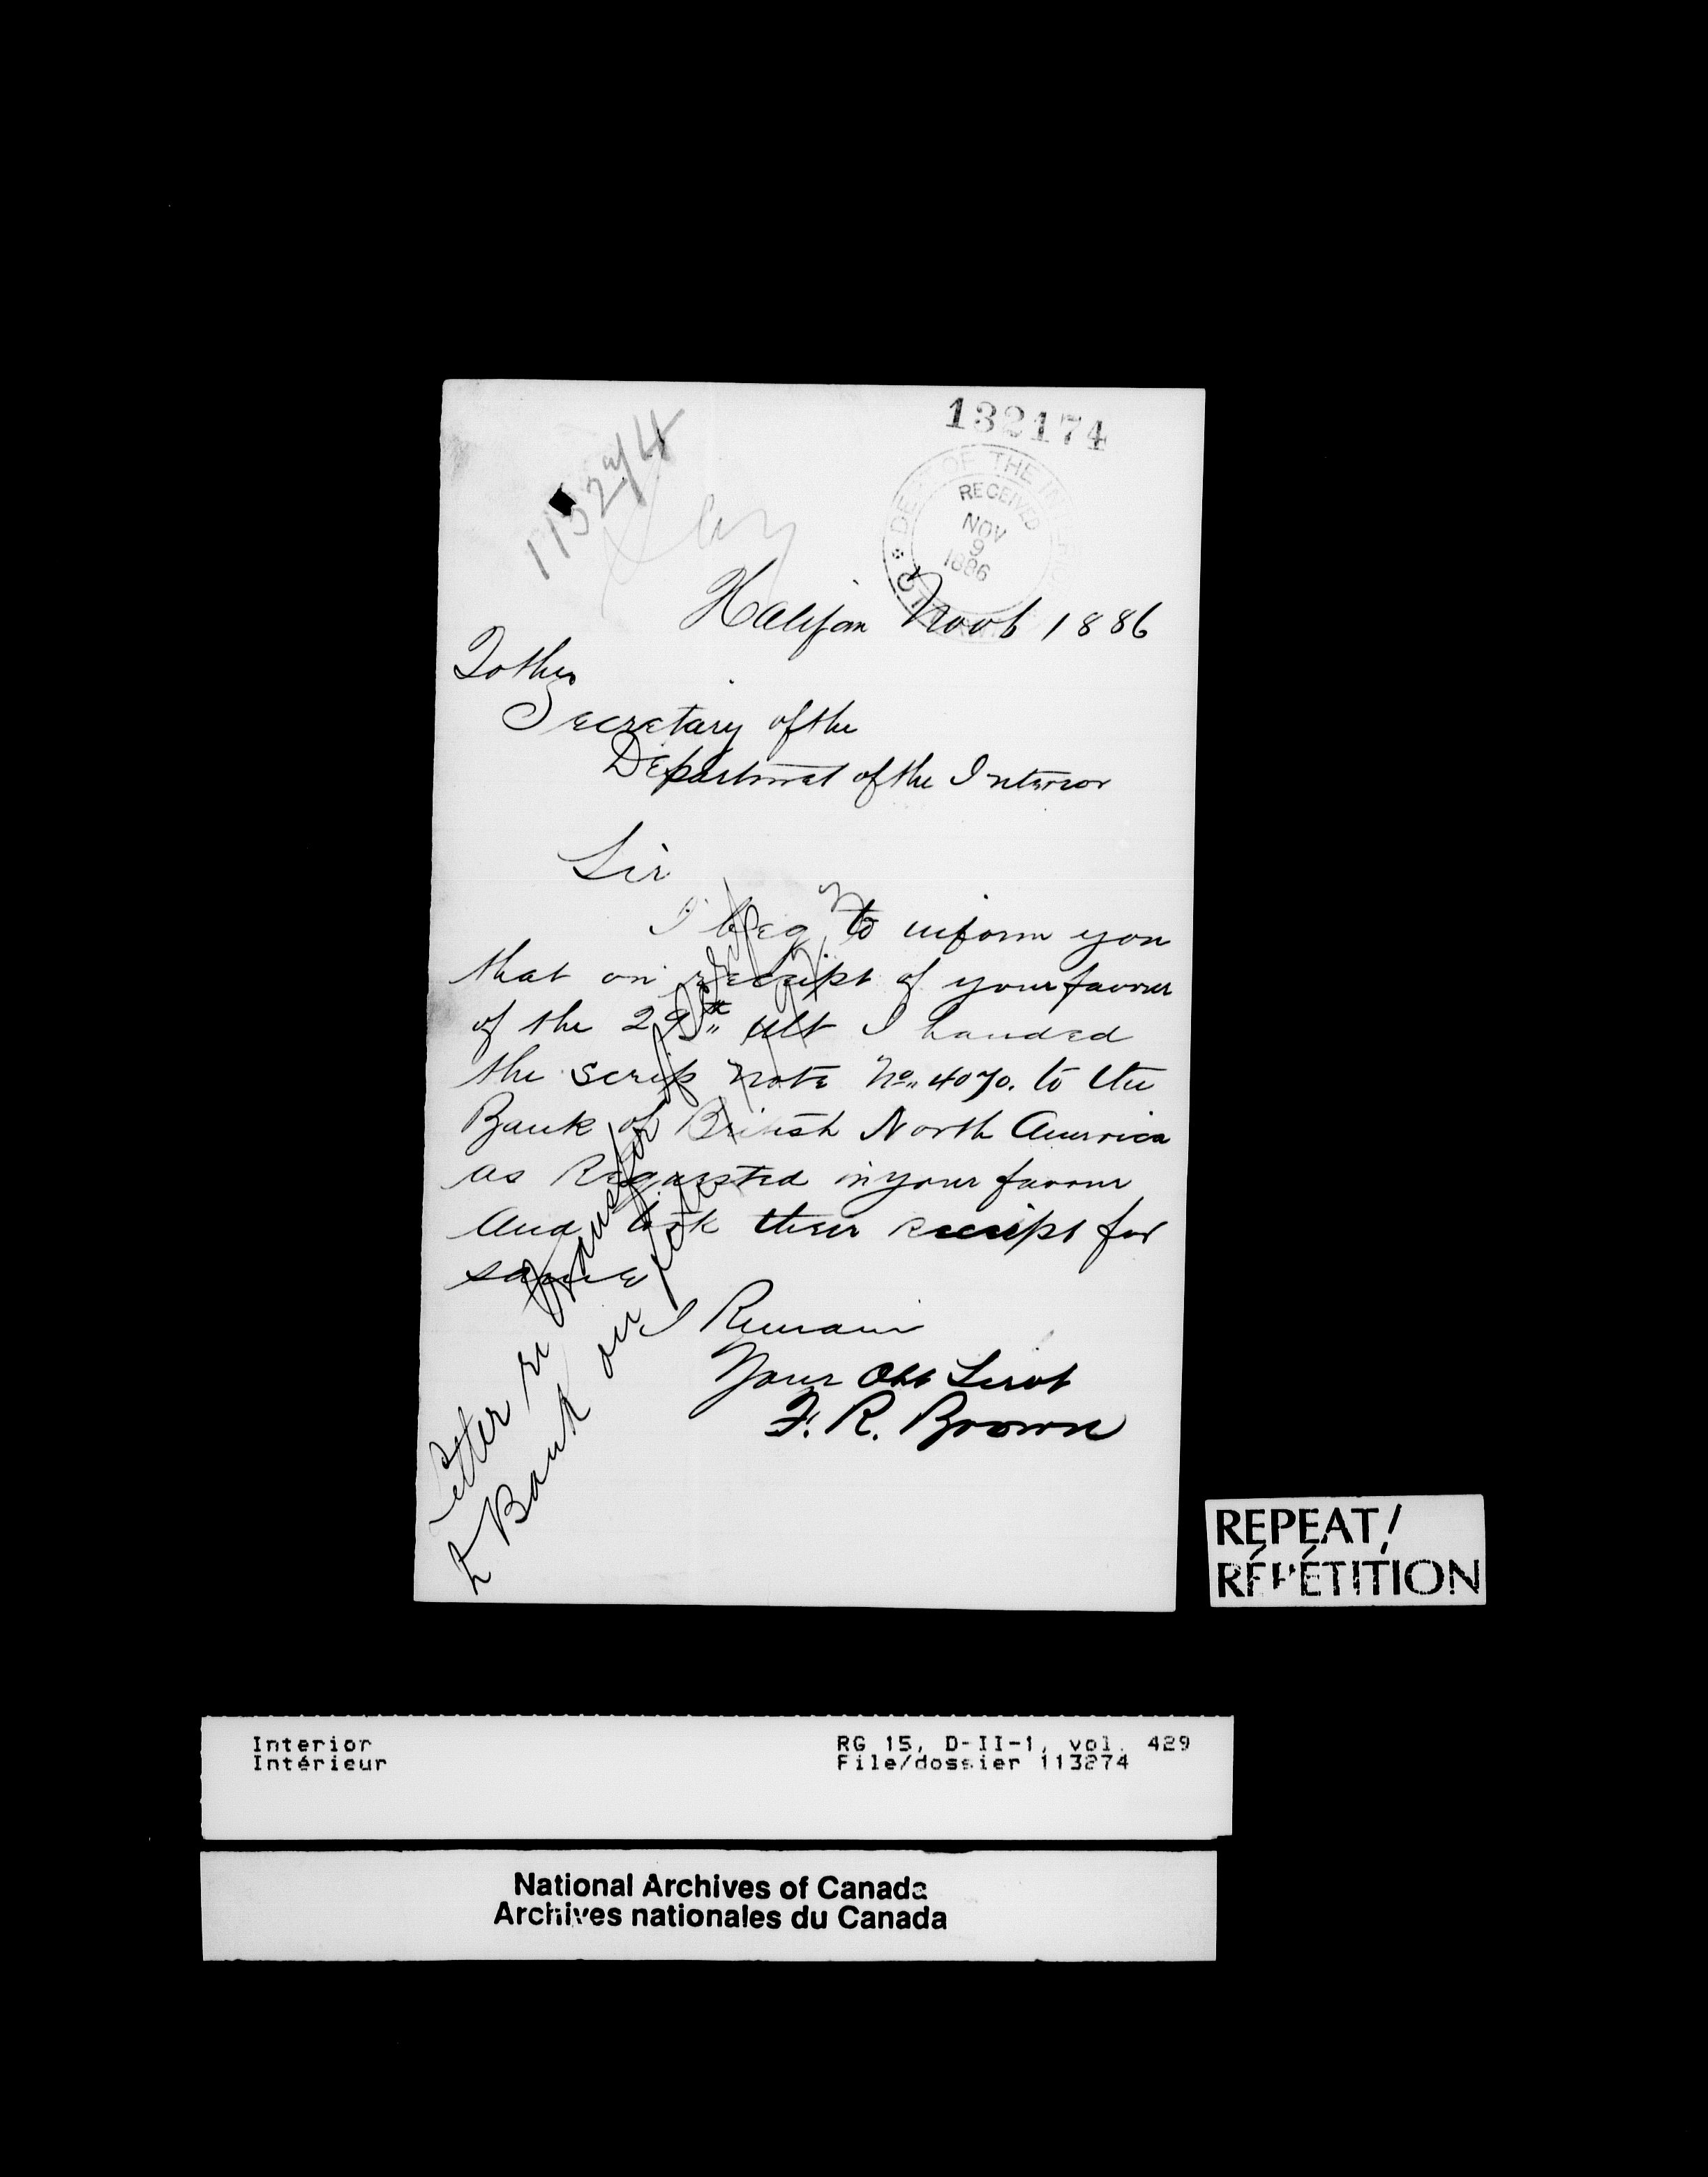 132174
113274
DEPT OF THE INTERIOR
RECEIVED
NOV
9
1886
OTTAWA
Halifax Nov 6 1886
To the
Secretary of the
Department of the Interior
Sir
I beg to inform you
that on receipt of your favour
of the 29th ult I handed
the scrip note No. 4070. to the
Bank of British North America
as Requested in your favour
and took their receipt for
same
I Remain
Your Obt Servt
F. R. Brown
Letter re transfer of Scrip
to Bank on file
REPEAT/
RÉPÉTITION
Interior
Intérieur
RG 15, D-II-1, vol. 429
File/dossier 113274
National Archives of Canada
Archives nationales du Canada